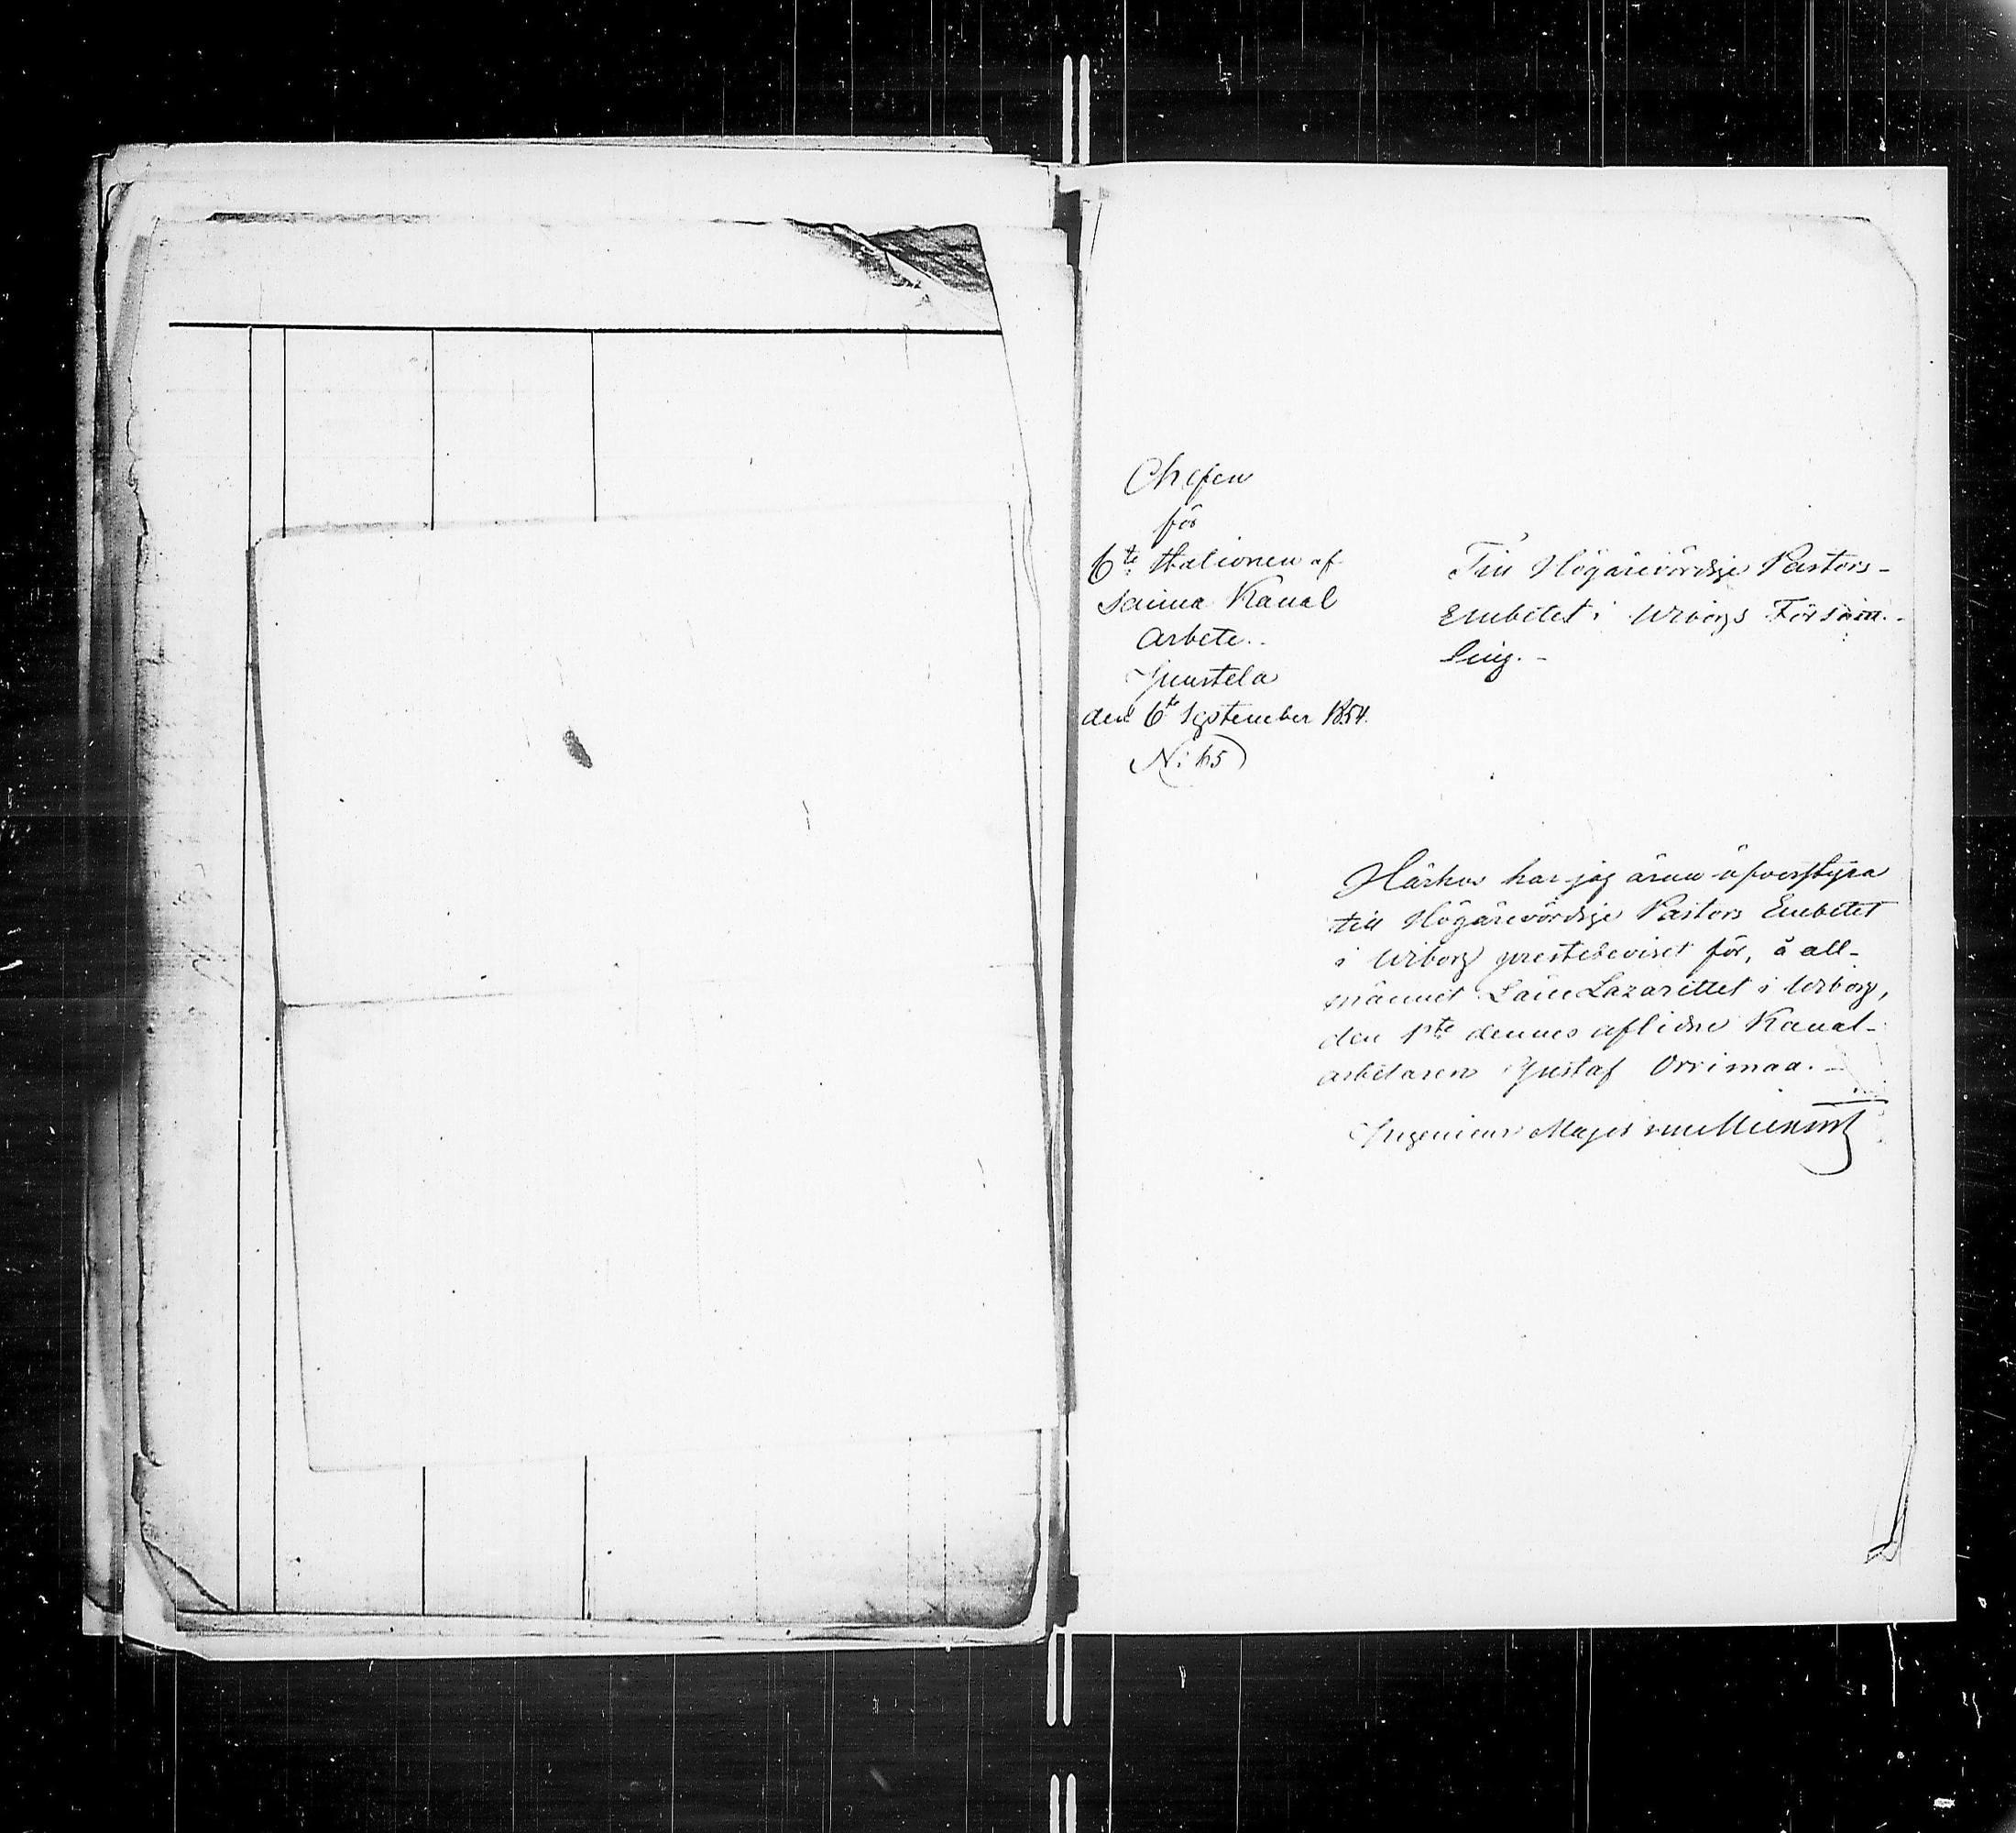 Chefen
för
6te Stationen af
Saima Kanal
Arbete.
Juustela
den 6te September 1854.
N: 65
Till Högärevördige Pastors-
Embetet i Wiborgs Försam-
ling.-
Härhos har jag äran öfverstyra
till Högärevördige Pastors Embetet
i Wiborg prestebeviset för, å all-
männet Läns Lazarettet i Wiborg,
den 1ste dennes aflidne Kanal-
arbetaren Gustaf Orrimaa.-
Ingenieur Major